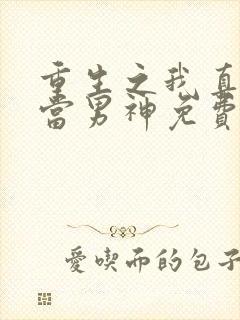 重生之我真
當男神免費
愛喫而的包子